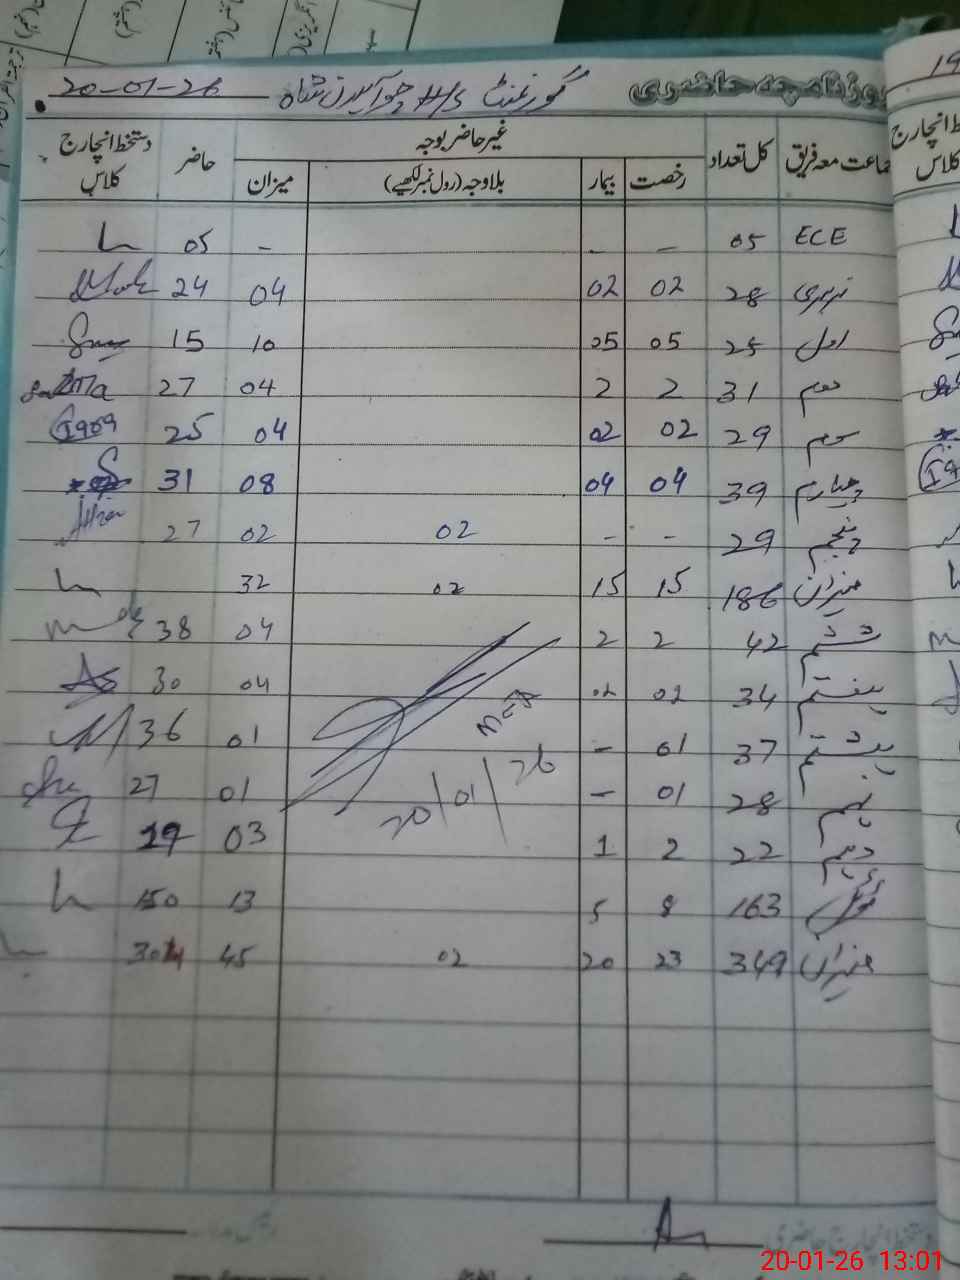 روزنامچہ حاضری گورنمنٹ H/S 20-01-26
جماعت معہ فریق کل تعداد غیر حاضر بوجہ حاضر دستخط انچارج کلاس
رخصت بیمار بلاوجہ (رول نمبر لکھیے) میزان
ECE 05 - - - 05
نرسری 28 02 02 04 24
اول 25 05 05 10 15
دوم 31 2 2 04 27
سوم 29 02 02 04 25
چہارم 39 04 04 08 31
پنجم 29 - - 02 02 27
میزان 186 15 15 02 32
ششم 42 2 2 04 38
ہفتم 34 02 02 04 30
ہشتم 37 01 - 01 36
نہم 28 01 - 01 27
دہم 22 2 1 03 19
20/01/26
163 8 5 13 150
میزان 349 23 20 02 45 304
دستخط انچارج حاضری
20-01-26 13:01
19
انچارج
کلاس